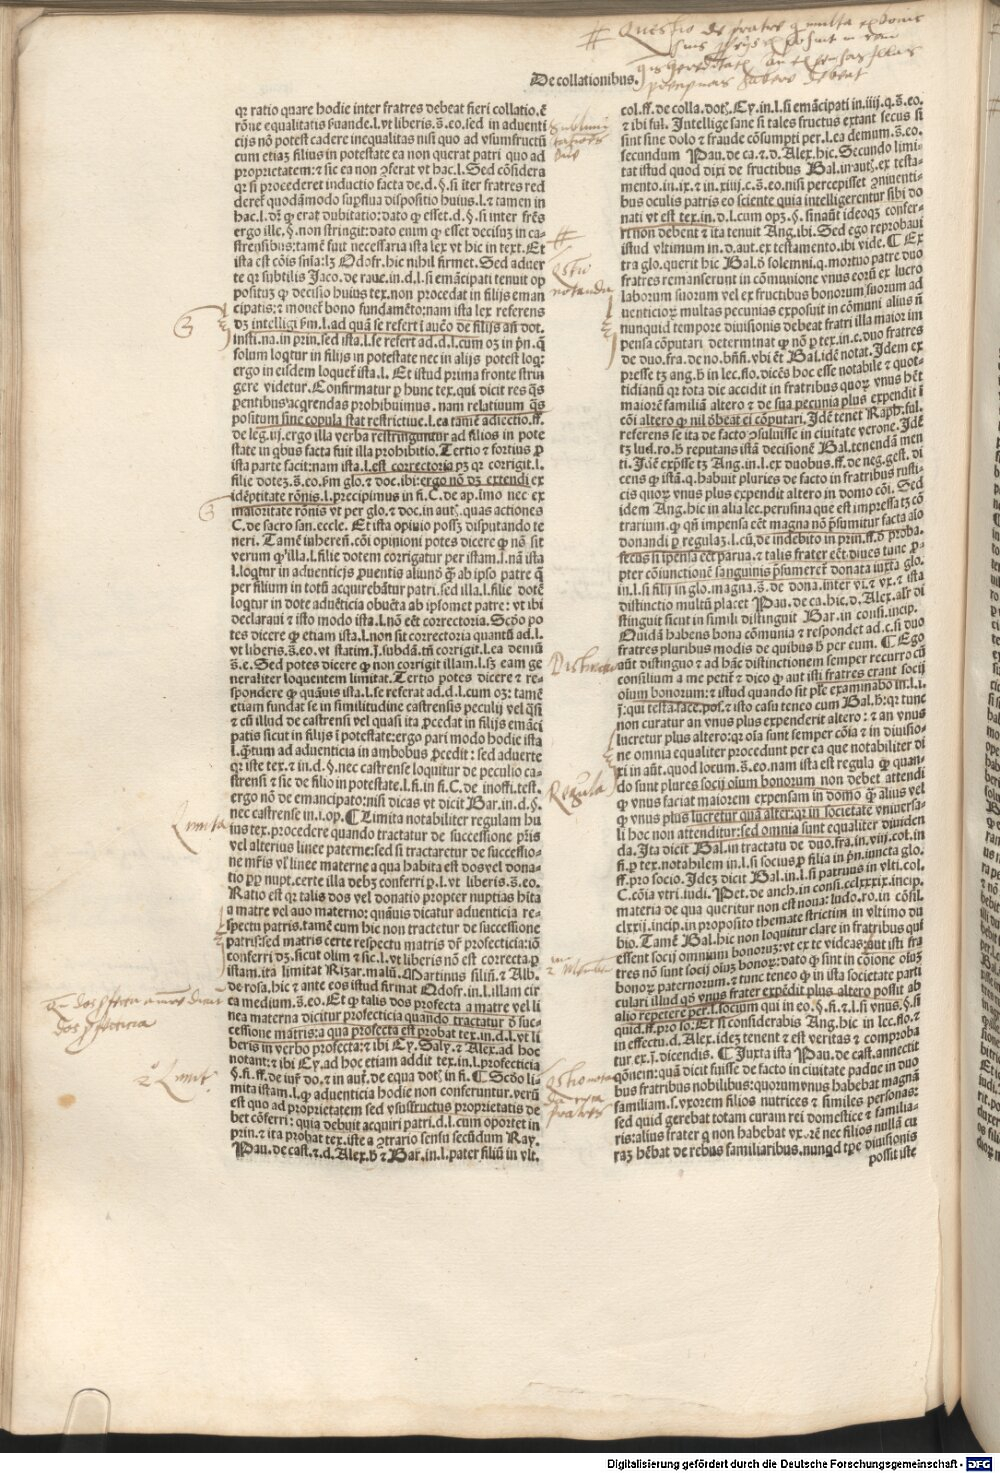 De collationibus.
qr ratio quare hodie inter fratres debeat fieri collatio. ē
rōne equalitatis ẜuande. l. vt liberis. s̄. eo. sed in aduenti
cijs nō potest cadere inequalitas nisi quo ad vsumfructū
cum etiaȝ filius in potestate ea non querat patri quo ad
proprietatem: ⁊ sic ea non ꝯferat vt hac. l. Sed cōsidera
qr si procederet inductio facta de. d. §. si iter fratres red
deret quodāmodo suꝑflua dispositio huius. l. ⁊ tamen in
hac. l. dr̄ ꝙ erat dubitatio: dato ꝙ esset. d. §. si inter frēs
ergo ille. §. non stringit: dato enim ꝙ esset decisuȝ in ca-
strensibus: tamē fuit necessaria ista lex vt hic in text. Et
ista est cōis snīa: lȝ Odofr. hic nihil firmet. Sed aduer
te qr subtilis Jaco. de raue. in. d. l. si emācipati tenuit op
positum ꝙ decisio huius tex. non procedat in filijs eman
cipatis: ⁊ mouet bono fundamēto: nam ista lex referens
dȝ intelligi ẜm. l. ad quā se refert
insti. na. in prin. sed ista. l. se refert ad. d. l. cum oȝ in p̄n. q̄
solum loqtur in filijs in potestate nec in alijs potest loq:
ergo in eisdem loquet ista. l. Et istud prima fronte strin
gere videtur. Confirmatur ꝑ hunc tex. qui dicit res q̄s
ꝑentibus acqrendas prohibuimus. nam relatiuum q̄s
positum sine copula stat restrictiue. l. ea tamē adiectio. ff.
de leg. iij. ergo illa verba restringuntur ad filios in pote
state in qbus facta fuit illa prohibitio. Tertio ⁊ fortius ꝑ
ista parte facit: nam ista. l. est correctoria pȝ qr corrigit. l.
filie doteȝ. s̄. eo. ẜm glo. ⁊ doc. ibi: ergo nō dȝ extendi ex
idēptitate rōnis. l. precipimus in fi. C. de ap. imo nec ex
maioritate rōnis vt per glo. ⁊ doc. in auṫ. quas actiones
C. de sacro san. eccle. Et ista opinio possȝ disputando te
neri. Tamē inherēn. cōi opinioni potes dicere ꝙ nō sit
verum ꝙ illa. l. filie dotem corrigatur per istam. l. nā ista
l. loqtur in aduenticijs ꝓuentis aliunō q̄ ab ipso patre q̄
per filium in totū acquirebātur patri. sed illa. l. filie dotē
loqtur in dote aduēticia obuēta ab ipsomet patre: vt ibi
declaraui ⁊ isto modo ista. l. nō eēt correctoria. Scdō po
tes dicere ꝙ etiam ista. l. non sit correctoria quantū ad. l.
vt liberis. s̄. eo. vt statim. j. subdā. tn̄ corrigit. l. ea demū
s̄. e. Sed potes dicere ꝙ non corrigit illam. l. sȝ eam ge
neraliter loquentem limitat. Tertio potes dicere ⁊ re-
spondere ꝙ quāuis ista. l. se referat ad. d. l. cum oȝ: tamē
etiam fundat se in similitudine castrensis peculij vel q̄si
⁊ cū illud de castrensi vel quasi ita ꝓcedat in filijs emāci
patis sicut in filijs i potestate: ergo pari modo hodie ista
l. q̄tum ad aduenticia in ambobus ꝓcedit: sed aduerte
qr iste tex. ⁊ in. d. §. nec castrense loquitur de peculio ca-
strensi ⁊ sic de filio in potestate. l. fi. in fi. C. de inoffi. test.
ergo nō de emancipato: nisi dicas vt dicit Bar. in. d. §.
nec castrense in. i. op. ¶ Limita notabiliter regulam hu
ius tex. procedere quando tractatur de successione p̄ris
vel alterius linee paterne: sed si tractaretur de successio-
ne mr̄is vel linee materne a qua habita est dos vel dona-
tio ꝓp nupt. certe illa debȝ conferri ꝑ. l. vt liberis. s̄. eo.
Ratio est qr talis dos vel donatio propter nuptias hita
a matre vel auo materno: quāuis dicatur aduenticia re-
spectu patris. tamē cum hic non tractetur de successione
patris: sed matris certe respectu matris dr̄ profecticia: iō
conferri dȝ. sicut olim ⁊ sic. l. vt liberis nō est correcta ꝑ
istam. ita limitat Rizar. malū. Martinus silim̄. ⁊ Alb.
de rosa. hic ⁊ ante eos istud firmat Odofr. in. l. illam cir
ca medium. s̄. eo. Et ꝙ talis dos profecta a matre vel li
nea materna dicitur profecticia quando tractatur d̄ suc-
cessione matris: a qua profecta est probat tex. in. d. l. vt li
beris in verbo profecta: ⁊ ibi Cy. Saly. ⁊ Alex. ad hoc
notant: ⁊ ibi Cy. ad hoc etiam addit tex. in. l. profecticia
§. fi. ff. de iur̄ do. ⁊ in aut̄. de equa dot. in fi. ¶ Scdō li-
mita istam. l. ꝙ aduenticia hodie non conferuntur. verū
est quo ad proprietatem sed vsusfructus proprietatis de
bet cōferri: quia debuit acquiri patri. d. l. cum oportet in
prin. ⁊ ita probat tex. iste a ꝯtrario sensu secūdum Ray.
Pau. de cast. ⁊. d. Alex. h̄ ⁊ Bar. in. l. pater filiū in vlt.
col. ff. de colla. dot. Cy. in. l. si emācipati in. iiij. q. s̄. eo.
⁊ ibi ful. Intellige sane si tales fructus extant secus si
sint sine dolo ⁊ fraude cōsumpti per. l. ea demum. s̄. eo.
secundum Pau. de ca. ⁊. d. Alex. hic. Secundo limi-
tat istud quod dixi de fructibus Bal. in auṫ. ex testa-
mento. in. ix. ⁊ in. xiiij. c. s̄. eo. nisi percepisset ꝯniuenti-
bus oculis patris eo sciente quia intelligerentur sibi do
nati vt est tex. in. d. l. cum opȝ. §. sinaūt ideoqȝ confer-
ri non debent ⁊ ita tenuit Ang. ibi. Sed ego reprobaui
istud vltimum in. d. aut. ex testamento. ibi vide. ¶ Ex
tra glo. querit hic Bal. d̄ solemni. q. mortuo patre duo
fratres remanserunt in cōmunione vnus eorū ex lucro
laborum suorum vel ex fructibus bonorum suorum ad
uenticioruȝ multas pecunias exposuit in cōmuni alius n̄
nunquid tempore diuisionis debeat fratri illa maior im
pensa cōputari determinat ꝙ nō ꝑ tex. in. c. duo fratres
de duo. fra. de no. bn̄fi. vbi ēt Bal. idē notat. Idem ex
presse tȝ ang. h̄ in lec. flo. dicēs hoc esse notabile ⁊ quot-
tidianū qr tota die accidit in fratribus quoꝝ vnus hēt
maiorē familiā altero ⁊ de sua pecunia plus expendit i
cōi altero ꝙ nil d̄beat ei cōputari. Idē tenet Raph. ful.
referens se ita de facto ꝯsuluisse in ciuitate verone. Idē
tȝ lud. ro. h̄ reputans istā decisionē Bal. tenendā men
ti. Idē exp̄sse tȝ Ang. in. l. ex duobus. ff. de neg. gest. di
cens ꝙ istā. q. habuit pluries de facto in fratribus rusti-
cis quoꝝ vnus plus expendit altero in domo cōi. Sed
idem Ang. hic in alia lec. perusina que est impressa tȝ cō
trarium. ꝙ qn̄ impensa eēt magna nō p̄sumitur facta aīo
donandi ꝑ regulaȝ. l. cū. de indebito in prin. ff. d̄ proba.
secus si īpensa eēt parua. ⁊ talis frater eēt diues tunc ꝓ-
pter cōiunctionē sanguinis p̄sumeret̄ donata iuxta glo.
in. l. si filij in glo. magna. s̄. de dona. inter vi. ⁊ vx. ⁊ ista
distinctio multū placet Pau. de ca. hic. d. Alex. aīr di
stinguit sicut in simili distinguit Bar. in consi. incip.
Quidā habens bona cōmunia ⁊ respondet ad. c. si duo
fratres pluribus modis de quibus h̄ per eum. ¶ Ego
aūt distinguo ⁊ ad hāc distinctionem semper recurro cū
consilium a me petit̄ ⁊ dico ꝙ aut isti fratres erant socij
oium bonorum: ⁊ istud quando sit ple examinabo in. l. i.
j. qui testa. face. pos. ⁊ isto casu teneo cum Bal. h̄: qr tunc
non curatur an vnus plus expenderit altero: ⁊ an vnus
lucretur plus altero: qr oīa sunt semper cōia ⁊ in diuisio-
ne omnia equaliter procedunt per ea que notabiliter di
xi in aūt. quod locum. s̄. eo. nam ista est regula ꝙ quan-
do sunt plures socij oium bonorum non debet attendi
ꝙ vnus faciat maiorem expensam in domo q̄ alius vel
ꝙ vnus plus lucretur quā alter: qr in societate vniuersa-
li hoc non attenditur: sed omnia sunt equaliter diuiden
da. Ita dicit Bal. in tractatu de duo. fra. in. viij. col. in
fi. ꝑ tex. notabilem in. l. si socius ꝓ filia in p̄n. iuncta glo.
ff. pro socio. Ideȝ dicit Bal. in. l. si patruus in vlti. col.
C. cōia vtri. iudi. Pet. de anch. in consi. cclxxxix. incip.
materia de qua queritur non est noua: ludo. ro. in cōsil.
clxxij. incip. in proposito themate strictim in vltimo du
bio. Tamē Bal. hic non loquitur clare in fratribus qui
essent socij omnium bonorum: vt ex te videas: aut isti fra
tres nō sunt socij oiuȝ bonoꝝ: dato ꝙ sint in cōione oiuȝ
bonoꝝ paternorum. ⁊ tunc teneo ꝙ in ista societate parti
culari illud qd̄ vnus frater expēdit plus altero possit ab
alio repetere per. l. socium qui in eo. §. fi. ⁊. l. si vnus. §. si
quid. ff. pro so. Et si considerabis Ang. hic in lec. flo. ⁊
in effectu. d. Alex. ideȝ tenent ⁊ est veritas ⁊ comproba
tur ex. j. dicendis. ¶ Juxta ista Pau. de cast. annectit
qōnem: quā dicit fuisse de facto in ciuitate padue in duo
bus fratribus nobilibus: quorum vnus habebat magnā
familiam. s. vxorem filios nutrices ⁊ similes personas:
sed quid gerebat totam curam rei domestice ⁊ familia-
ris: alius frater q non habebat vxorē nec filios nullā cu
raȝ hēbat de rebus familiaribus. nunqd tp̄e diuisionis
possit iste
Limita
Regula
Digitalisierung gefördert durch die Deutsche Forschungsgemeinschaft - DFG